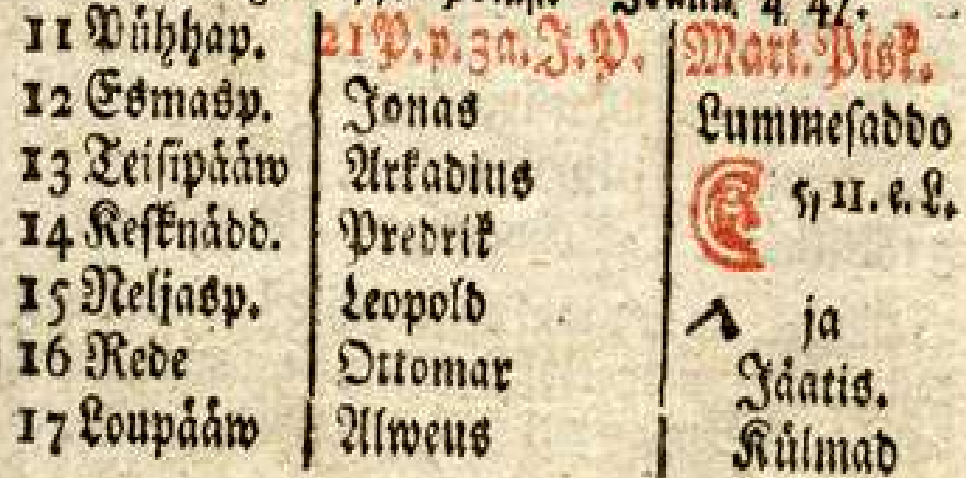 Joann. 4 47.
11 Pühhap. 21 P. p. 3a. J. P. Mart. Pisk.
12 Esmasp. Jonas Lummesaddo
13 Teisipääw Arkadius
14 Kesknädd. Predrik 5, 11. e. L.
15 Neljasp. Leopold ja
16 Rede Ottomar Jäatis.
17 Loupääw Alweus Külmad